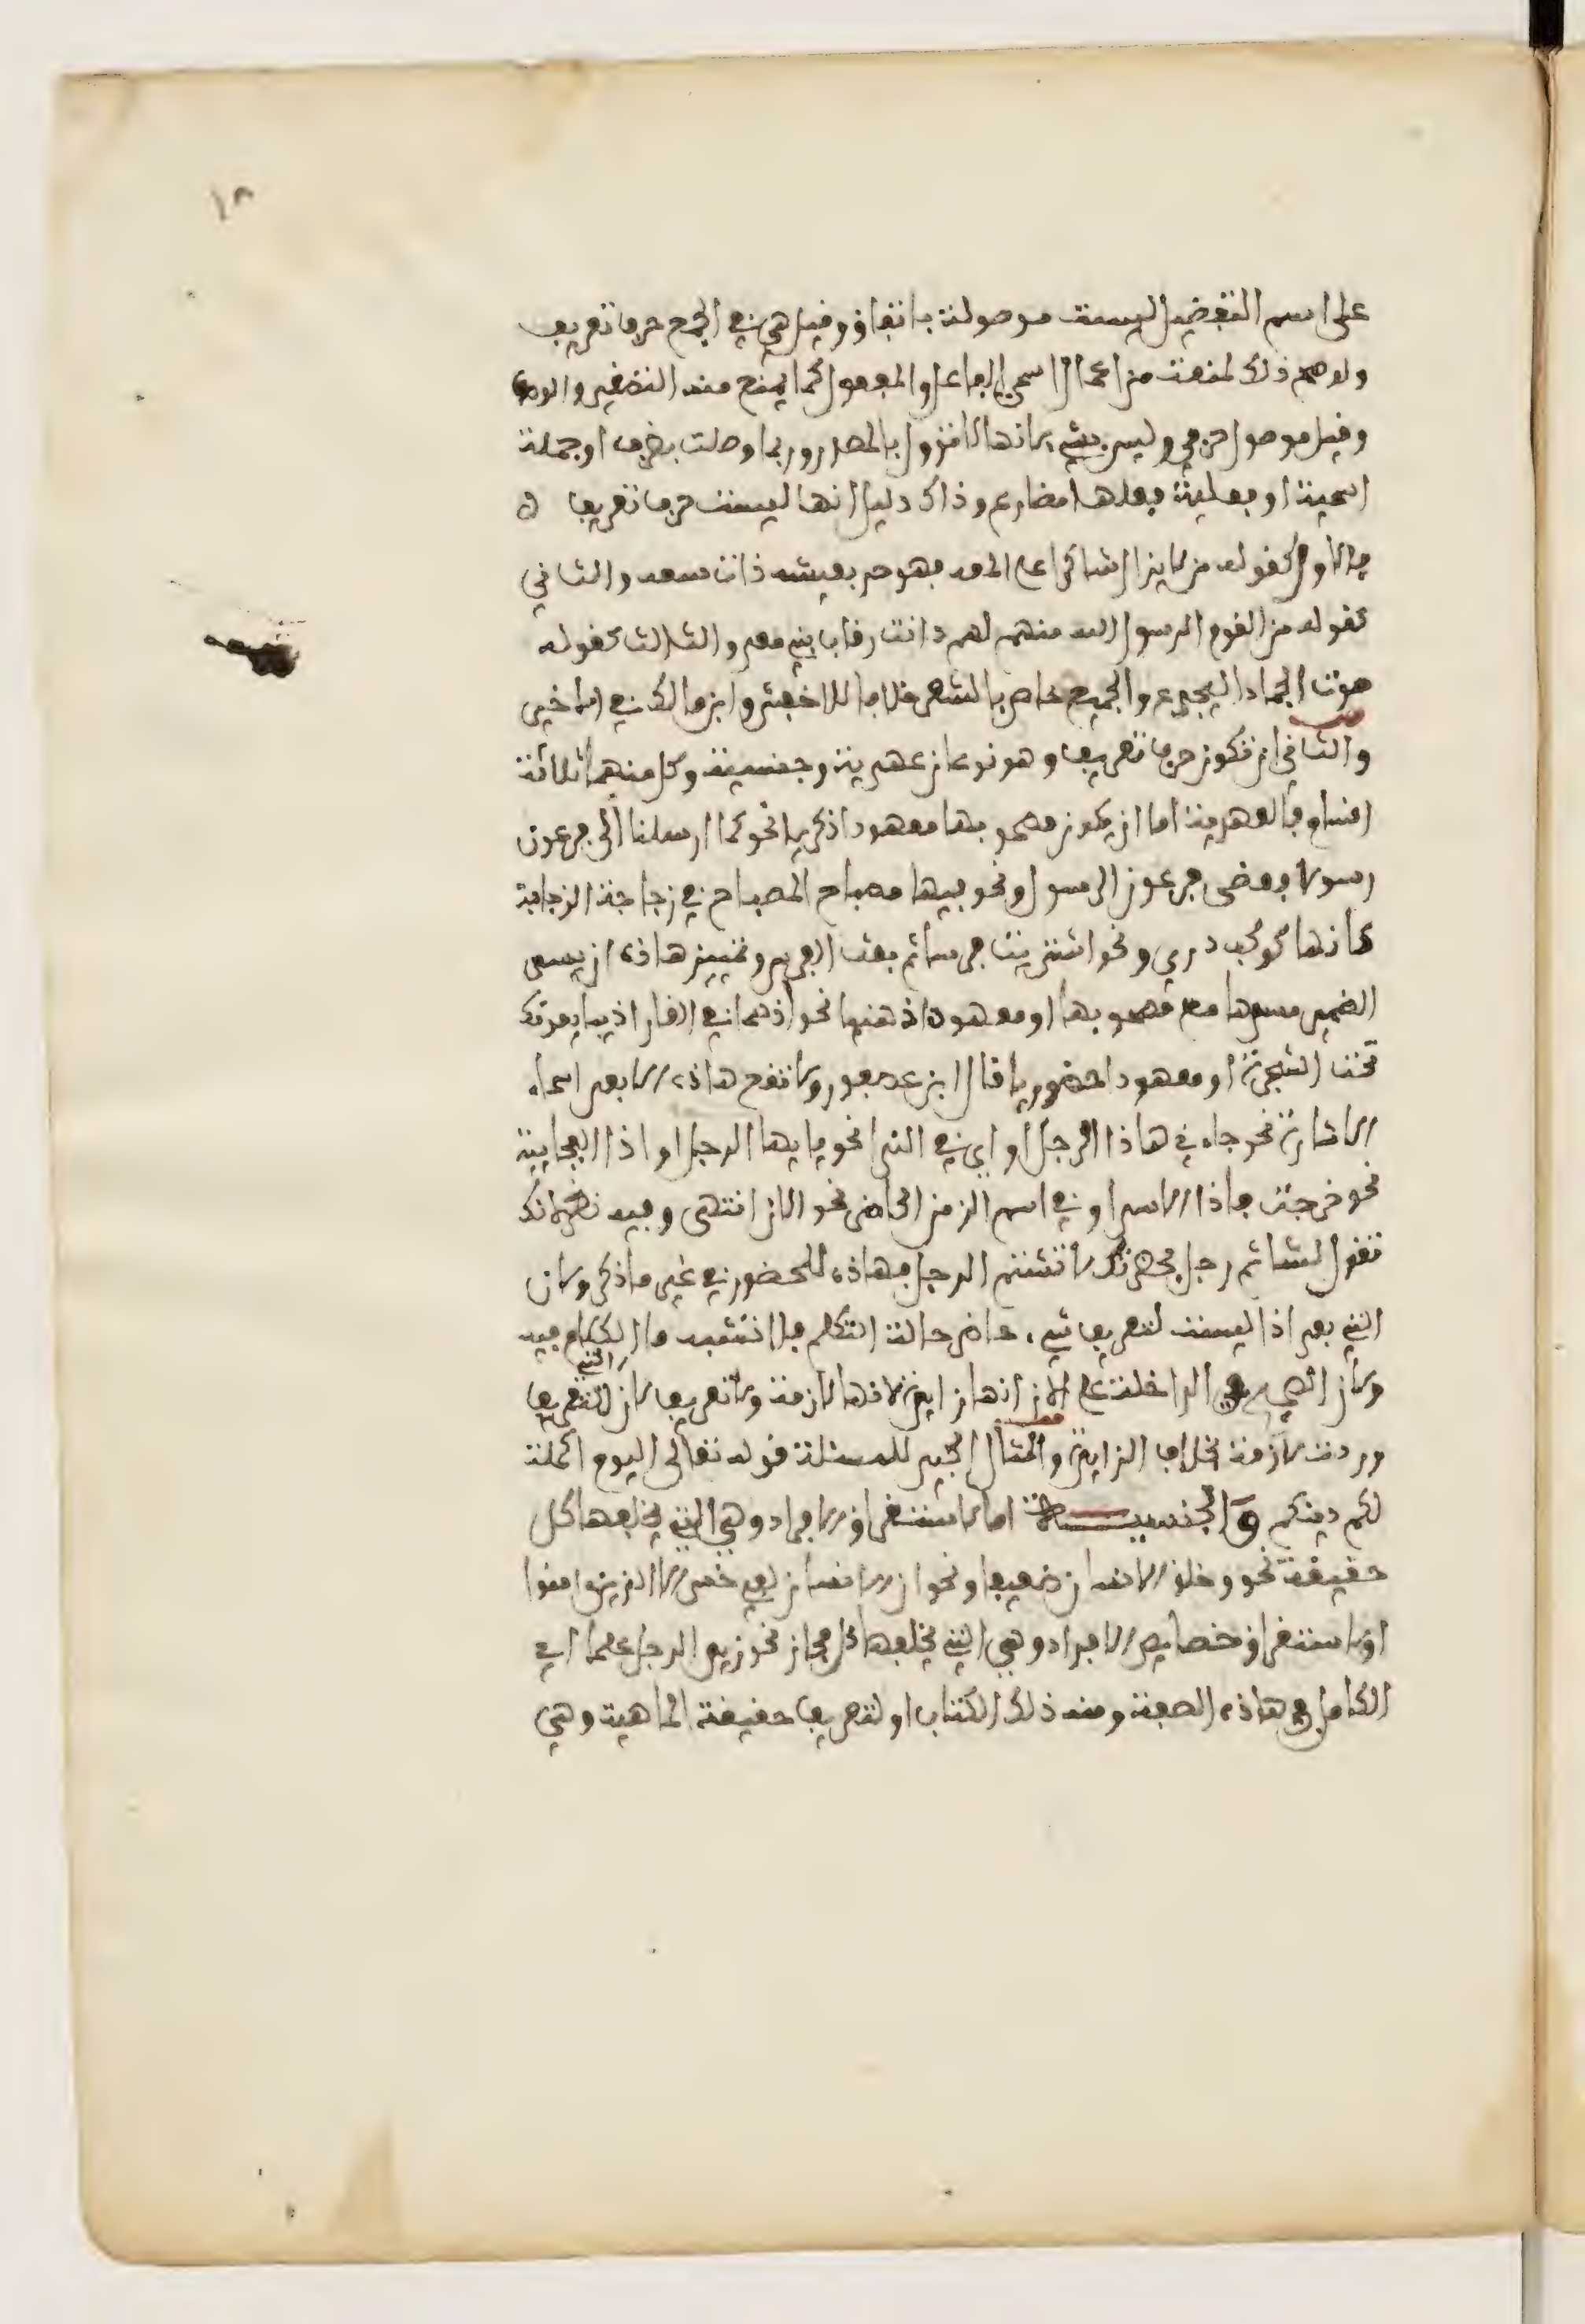 ١٨
على اسم التفضيل ليست موصولة باتفاق وقيل هي في الجمع حرف تعريف
ولو صح ذلك لمنعت من اعمال اسمي الفاعل والمفعول كما يمنع منه التصغير والوصف
وقيل موصول حرفي وليس بشيء لانها لا تؤول بالمصدر وربما وصلت بظرف او جملة
اسمية او فعلية فعلها مضارع وذاك دليل انها ليست حرف تعريف
فالاول كقوله من لا يزال شاكرا على المعه فهو حر بعيشه ذات سعه والثاني
كقوله من القوم الرسول الله منهم لهم دانت رقاب بني معد والثالث كقوله
صوت الحمار اليجدع والجميع خاص بالشعر خلافا للاخفش وابن مالك في الاخير
والثاني ان تكون حرف تعريف وهو نوعان عهدية وجنسية وكل منهما ثلاثة
اقسام فالعهدية اما ان يكون مصحوبها معهودا ذكريا نحو كما ارسلنا الى فرعون
رسولا فعصى فرعون الرسول ونحو فيها مصباح المصباح في زجاجة الزجاجة
كانها كوكب دري ونحو اشتريت فرسا ثم بعت الفرس وتمييز هاذه ان يسد
الضمير مسدها مع مصحوبها او معهودا ذهنيا نحو اذ هما في الغار اذ يبايعونك
تحت الشجرة او معهودا حضوريا قال ابن عصفور ولا تقع هاذه الا بعد اسماء
الاشارة نحو جاءني هاذا الرجل او اي في الندا نحو يايها الرجل او اذا الفجايية
نحو خرجت فاذا الاسد او في اسم الزمن الحاضر نحو الان انتهى وفيه نظر لانك
تقول لشاتم رجل بحضرتك لا تشتم الرجل فهاذه للحضور في غير ما ذكر ولان
التي بعد اذا ليست لتعريف شيء حاضر حالة التكلم فلا تشبه ما الكلام فيه
ولان الصحيح في الداخلة على الان انها زايدة لانها لازمة ولا تعريف لان التي للتعريف
وردت لازمة بخلاف الزايدة والمثال الجيد للمسئلة قوله تعالى اليوم اكملت
لكم دينكم والجنسية اما لاستغراق الافراد وهي التي يخلفها كل
حقيقة نحو وخلق الانسان ضعيفا ونحو ان الانسان لفي خسر الا الذين امنوا
او لاستغراق خصايص الافراد وهي التي يخلفها كل مجاز نحو زيد الرجل علما اي
الكامل في هاذه الصفة ومنه ذلك الكتاب او لتعريف حقيقة الماهية وهي